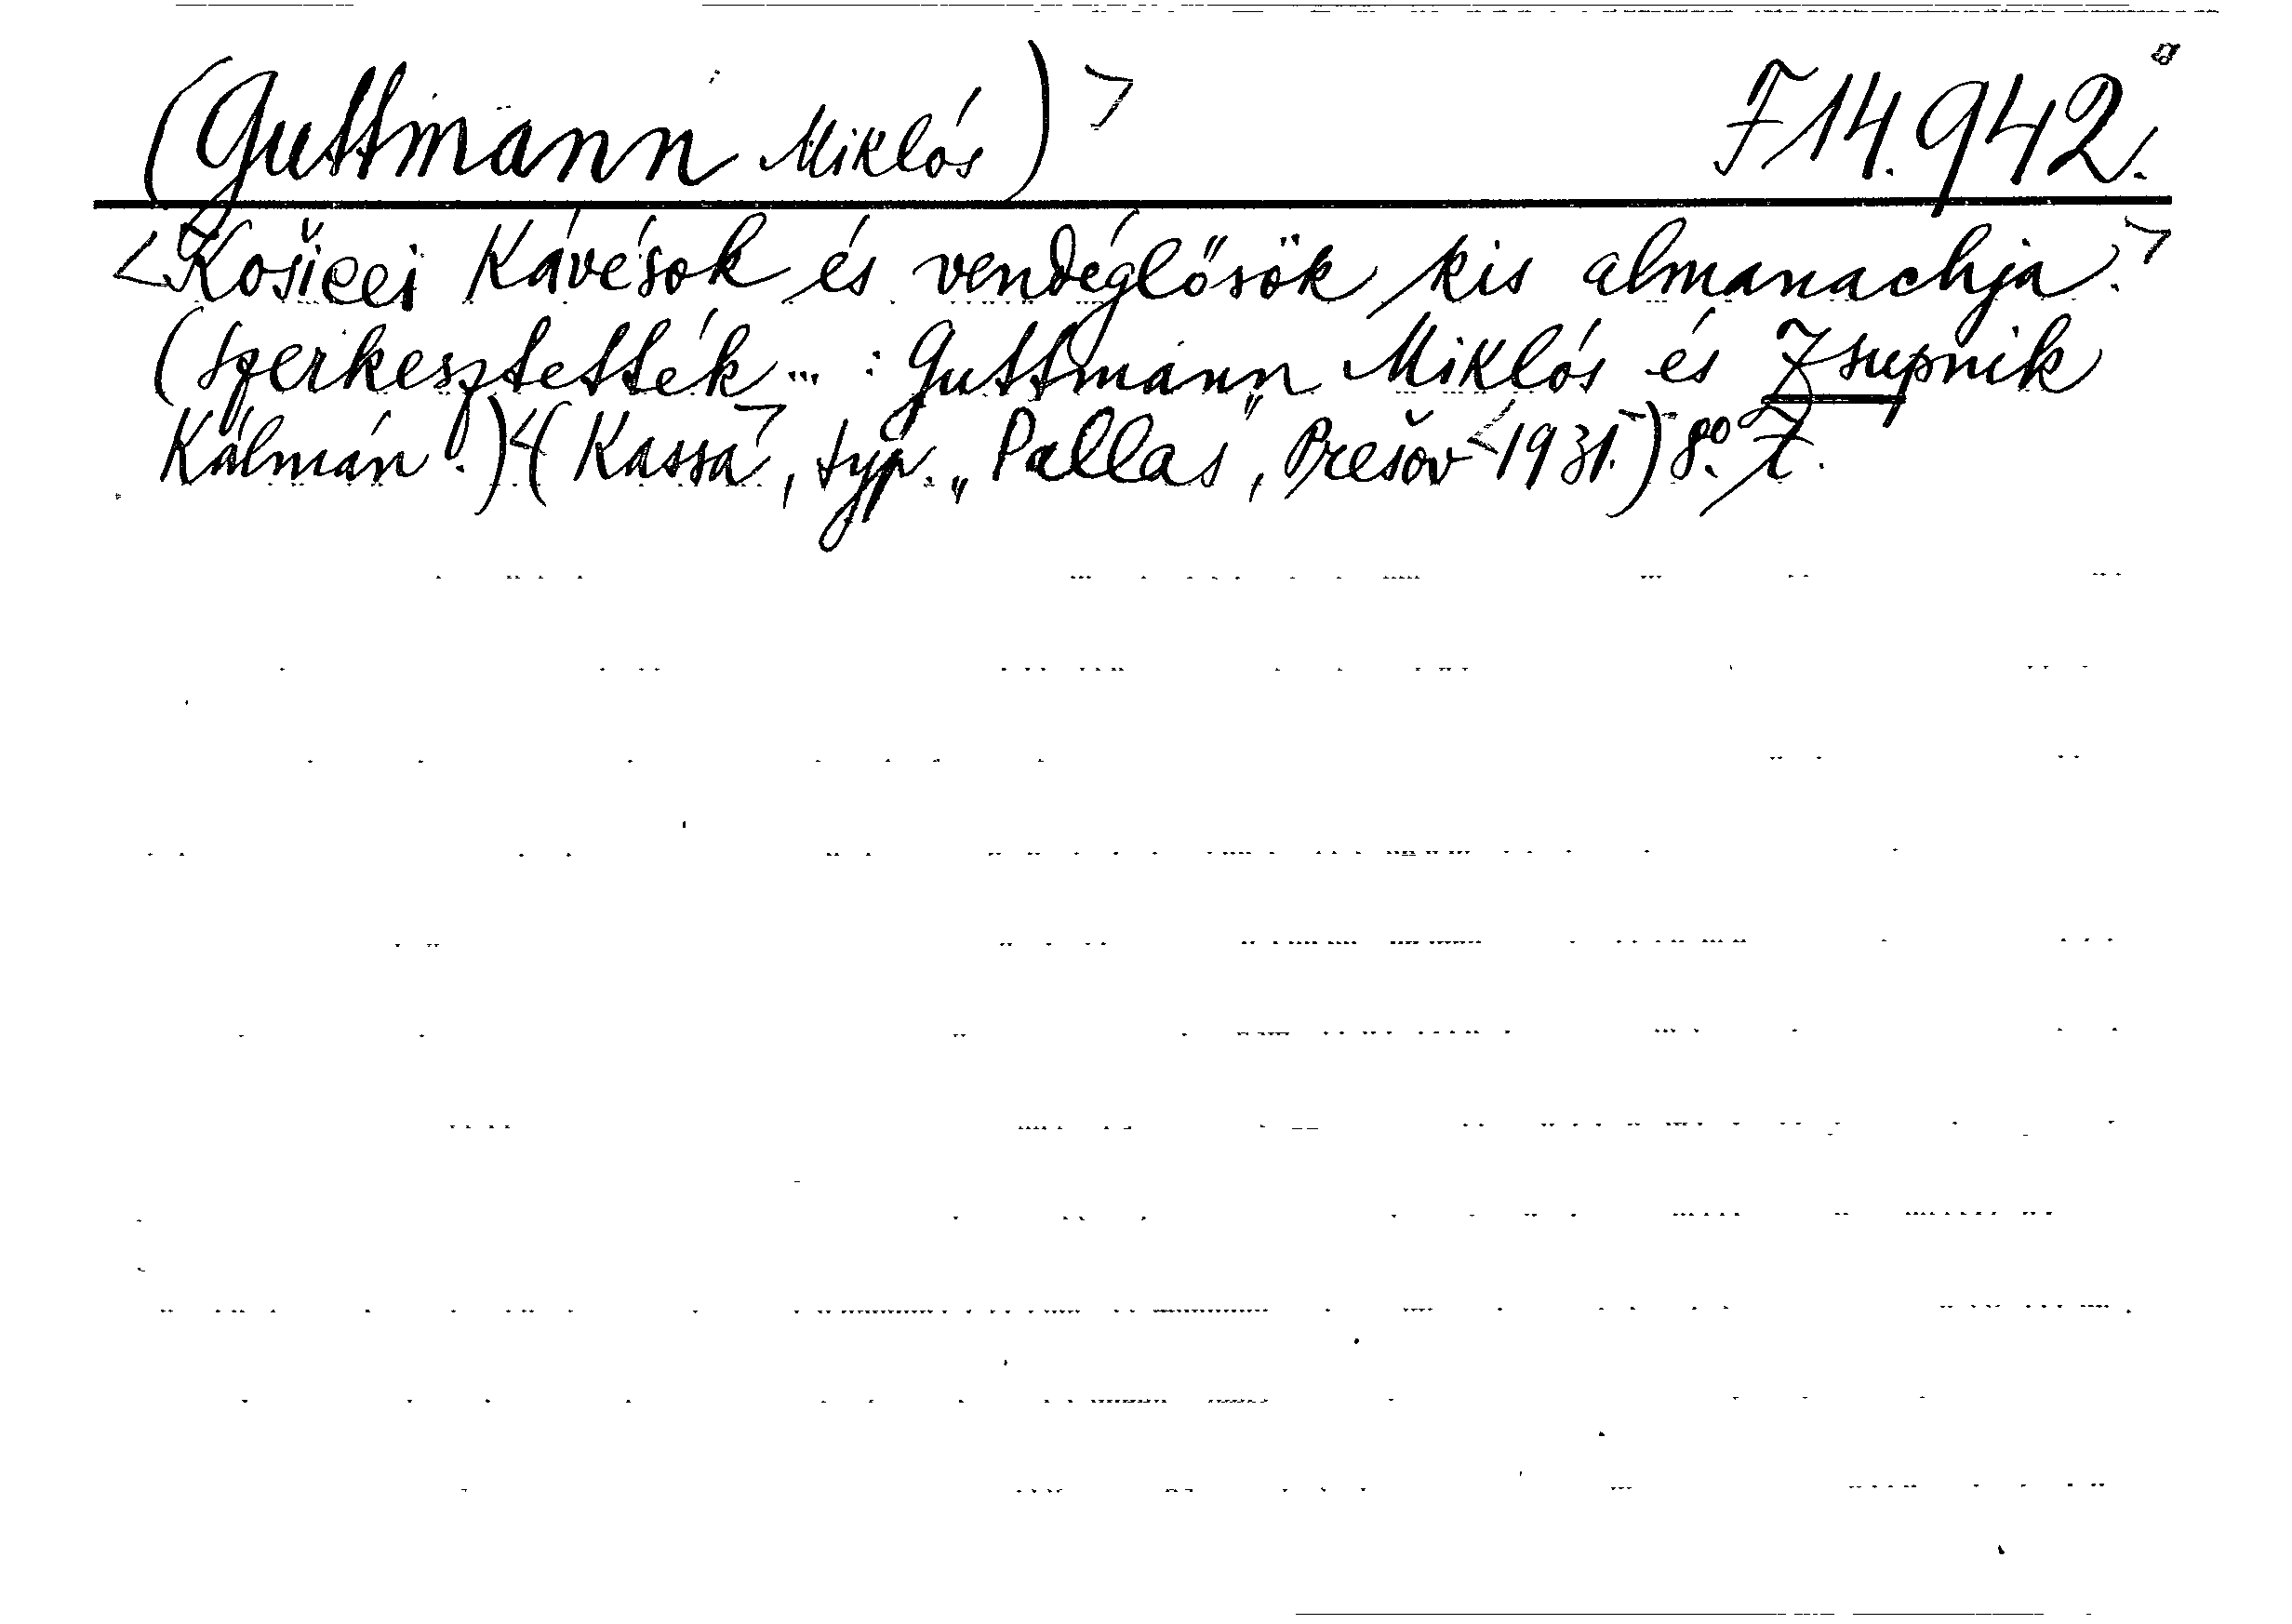 (Guttmann Miklós)> F 14.942.
<Košicei Kávésok és vendéglősök kis almanachja.>
(Szerkesztették... : Guttmann Miklós és Zsupnik
Kálmán.) (Kassa, typ. „Pallas", Prešov <1931.>) 8° Z.